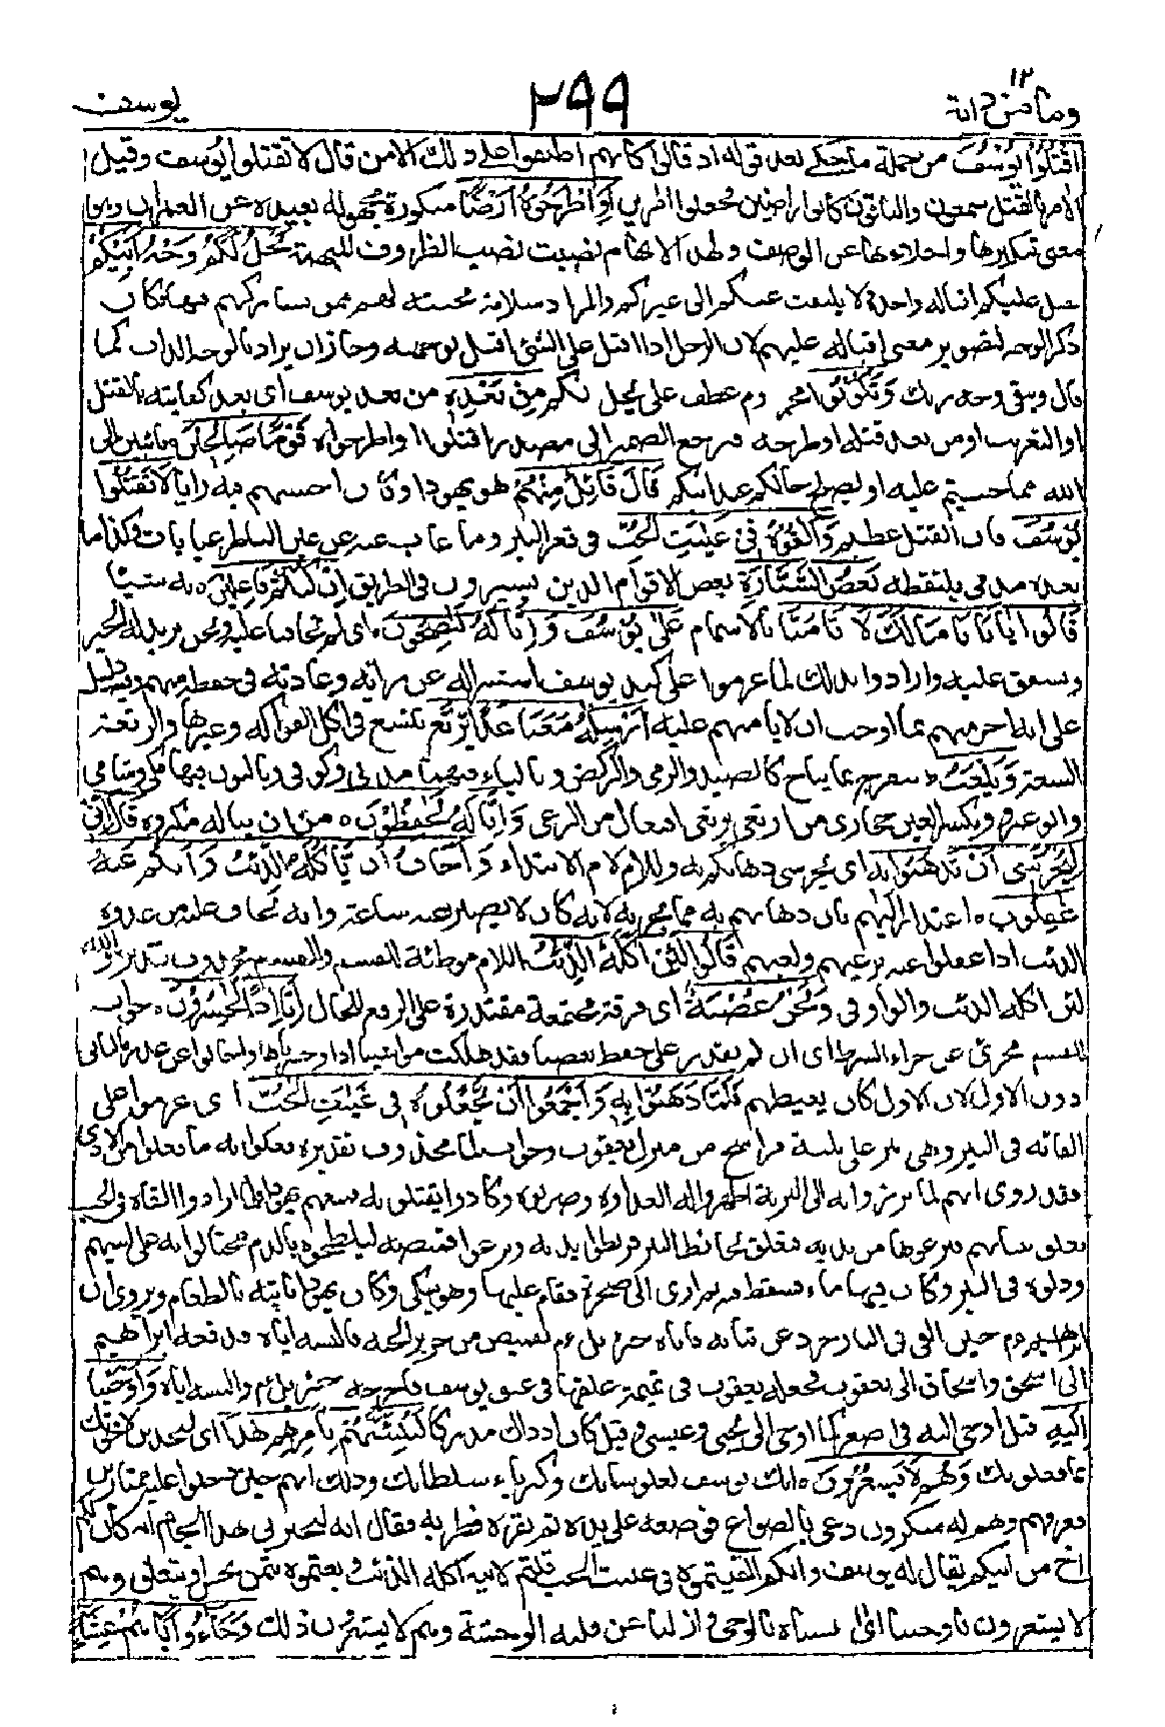 وما من دابة ١٢
٢٩٩
يوسف
اقْتُلُوا يُوسُفَ من جملة ما حكى بعد قوله اذ قالوا كانهم اطبقوا على ذلك الا من قال لا تقتلوا يوسف وقيل
الامر بالقتل سمعون والباقون كانوا راضين فجعلوا امرين أَوِ اطْرَحُوهُ أَرْضًا منكورة مجهولة بعيدة عن العمران وهو
معنى تنكيرها واخلاءها عن الوصف ولهذا الابهام نصبت نصب الظروف المبهمة يَخْلُ لَكُمْ وَجْهُ أَبِيكُمْ
عليكم اقباله واحدة لا يلتفت عنكم الى غيركم والمراد سلامة محبته لهم ممن يشاركهم فيها فكان
ذكر الوجه لتصوير معنى اقباله عليهم لان الرجل اذا اقبل على الشئ اقبل بوجهه وجاز ان يراد بالوجه الذات كما
قال ويبقى وجه ربك وَتَكُونُوا مجزوم عطف على يخل لكم مِنْ بَعْدِهِ من بعد يوسف اى بعد كفايته بالقتل
او التغريب او من بعد قتله او طرحه فيرجع الضمير الى مصدر اقتلوا او اطرحوا قَوْمًا صَالِحِينَ تائبين الى
الله مما جنيتم عليه او يصلح حالكم عند ابيكم قَالَ قَائِلٌ مِنْهُمْ هو يهودا وكان احسنهم فيه رايا لَا تَقْتُلُوا
يُوسُفَ فان القتل عظيم وَأَلْقُوهُ فِي غَيَابَتِ الْجُبِّ فى قعر البئر وما غاب منه عن عين الناظر غيابات وكذا ما
بعده مدنى يلتقطه بَعْضُ السَّيَّارَةِ بعض الاقوام الذين يسيرون فى الطريق إِنْ كُنْتُمْ فَاعِلِينَ به شيئا
قَالُوا يَا أَبَانَا مَا لَكَ لَا تَأْمَنَّا بالاشمام عَلَى يُوسُفَ وَإِنَّا لَهُ لَنَاصِحُونَ اى لم تخافنا عليه ونحن نريد له الخير
ونشفق عليه وارادوا بذلك لما عزموا على كيد يوسف استنزاله عن رايه وعادته فى حفظه منهم وفيه دليل
على انه احس منهم بما اوجب ان لا يأمنهم عليه أَرْسِلْهُ مَعَنَا غَدًا يَرْتَعْ نتسع فى اكل الفواكه وغيرها والرتعة
السعة وَيَلْعَبْ نتفرج بما يباح كالصيد والرمى والركض وبالياء فيهما مدنى وكوفى وبالنون فيهما مكى وشامى
وابو عمرو وبكسر العين حجازى من ارتعى يرتعى افتعال من الرعى وَإِنَّا لَهُ لَحَافِظُونَ من ان يناله مكروه قَالَ إِنِّي
لَيَحْزُنُنِي أَنْ تَذْهَبُوا بِهِ اى يحزننى ذهابكم به واللام لام الابتداء وَأَخَافُ أَنْ يَأْكُلَهُ الذِّئْبُ وَأَنْتُمْ عَنْهُ
غَافِلُونَ اعتذر اليهم بان ذهابهم به مما يحزنه لانه كان لا يصبر عنه ساعة وانه يخاف عليه من عدوة
الذئب اذا غفلوا عنه برعيهم ولعبهم قَالُوا لَئِنْ أَكَلَهُ الذِّئْبُ اللام موطئة للقسم والقسم محذوف تقديره والله
لئن اكله الذئب والواو فى وَنَحْنُ عُصْبَةٌ اى فرقة مجتمعة مقتدرة على الدفع للحال إِنَّا إِذًا لَخَاسِرُونَ جواب
للقسم مجزئ عن جزاء الشرط اى ان لم نقدر على حفظ بعضنا فقد هلكت مواشينا اذا وخسرناها واجابوا عن عذره الثانى
دون الاول لان الاول كان يغيظهم فَلَمَّا ذَهَبُوا بِهِ وَأَجْمَعُوا أَنْ يَجْعَلُوهُ فِي غَيَابَتِ الْجُبِّ اى عزموا على
القائه فى البئر وهى بئر على ثلثة فراسخ من منزل يعقوب وجواب لما محذوف تقديره فعلوا به ما فعلوا من الاذى
فقد روى انهم لما برزوا به الى البرية اظهروا له العداوة وضربوه وكادوا يقتلونه فمنعهم يهودا فلما ارادوا القاه فى الجب
تعلق بثيابهم فنزعوها من يديه فتعلق بحائط البئر فربطوا يديه ونزعوا قميصه ليلطخوه بالدم فيحتالوا به على ابيهم
ودلوه فى البئر وكان فيها ماء فسقط فيه ثم اوى الى صخرة فقام عليها وهو يبكى وكان يهودا ياتيه بالطعام ويروى ان
ابراهيم حين القى فى النار جرد عن ثيابه فاتاه جبريل بقميص من حرير الجنة فالبسه اياه فدفعه ابراهيم
الى اسحق واسحاق الى يعقوب فجعله يعقوب فى تميمة علقها فى عنق يوسف فاخرجه جبريل والبسه اياه وَأَوْحَيْنَا
إِلَيْهِ قيل اوحى اليه فى الصغر كما اوحى الى يحيى وعيسى وقيل كان اذ ذاك مدركا لَتُنَبِّئَنَّهُمْ بِأَمْرِهِمْ هَذَا اى لتحدثن اخوتك
بما فعلوا بك وَهُمْ لَا يَشْعُرُونَ انك يوسف لعلو شانك وكبرياء سلطانك وذلك انهم حين دخلوا عليه ممتارين
فعرفهم وهم له منكرون دعى بالصواع فوضعه على يده ثم نقره فطن به فقال انه ليخبرنى هذا الجام انه كان لكم
اخ من ابيكم يقال له يوسف وانكم القيتموه فى غيابت الجب وقلتم لابيه اكله الذئب وبعتموه بثمن بخس او يتعلق وهم
لا يشعرون باوحينا اى انسناه بالوحى وازلنا عن قلبه الوحشة وهم لا يشعرون ذلك وَجَاءُوا أَبَاهُمْ عِشَاءً